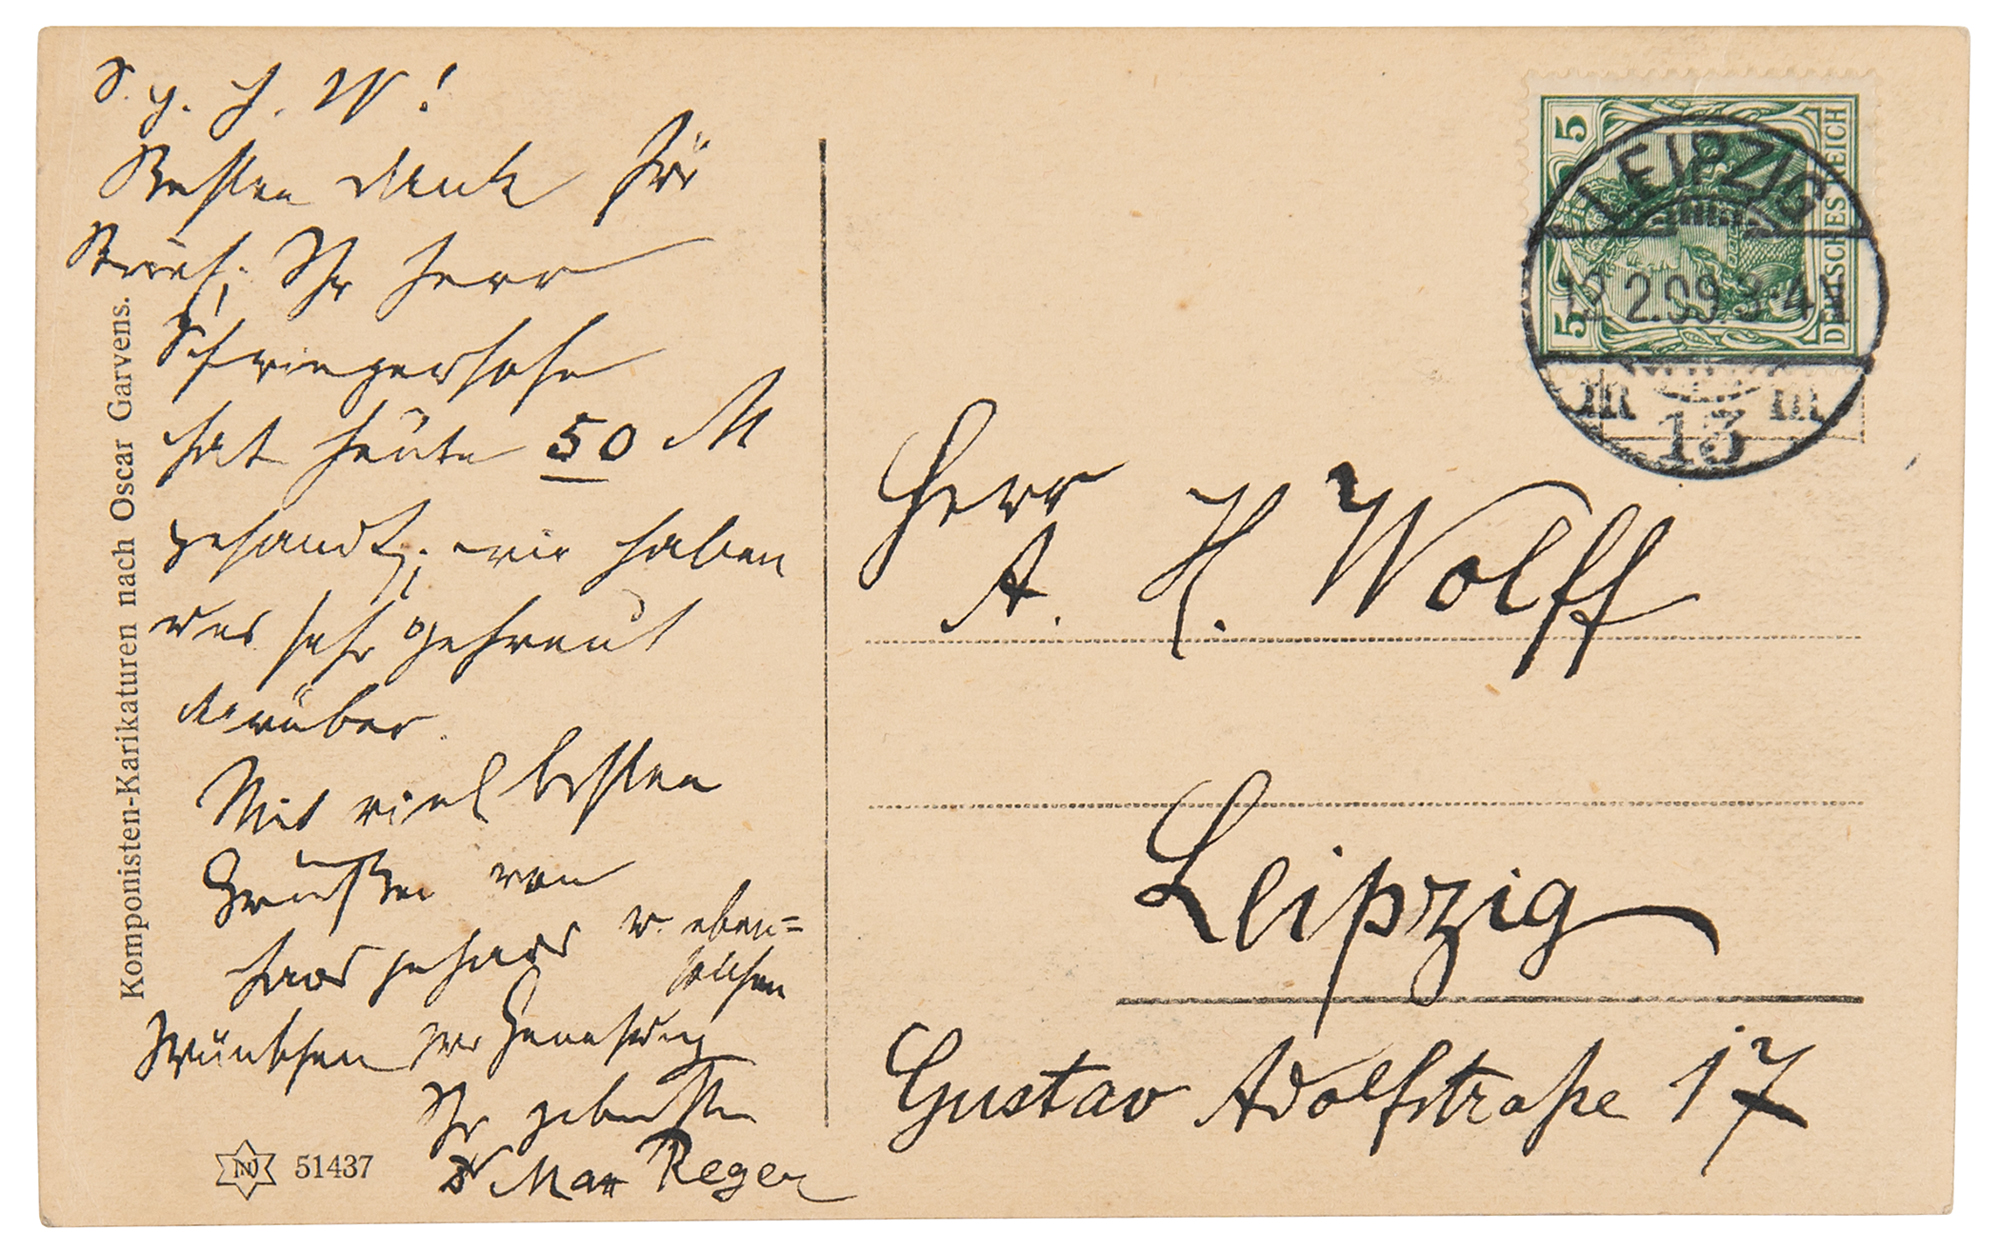 S. g. H. W!
Besten Dank für
Brief; Ihr Herr
Schwiegersohn
hat heute 50 M
gesandt; wir haben
uns sehr gefreut
darüber.
Mit viel besten
Grüßen von
Haus zu Haus u. eben=
solchen
Wünschen zur Genesung
Ihr
Dr Max Reger
Komponisten-Karikaturen nach Oscar Garvens.
51437
5 5
DEUTSCHES REICH
LEIPZIG
12.2.09 3-4
13
Herr
A. H. Wolff
Leipzig
Gustav Adolfstraße 17